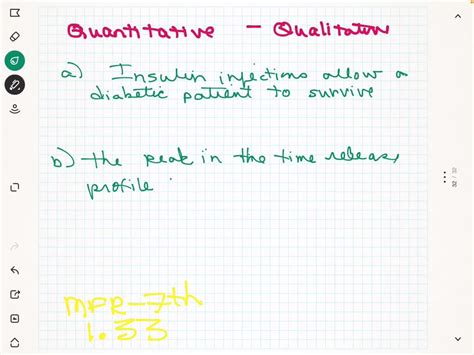 Quantitative - Qualitative
a) Insulin injections allow a
diabetic patient to survive
b) the peak in the time release
profile
MPR-7th
1.33
32 / 32